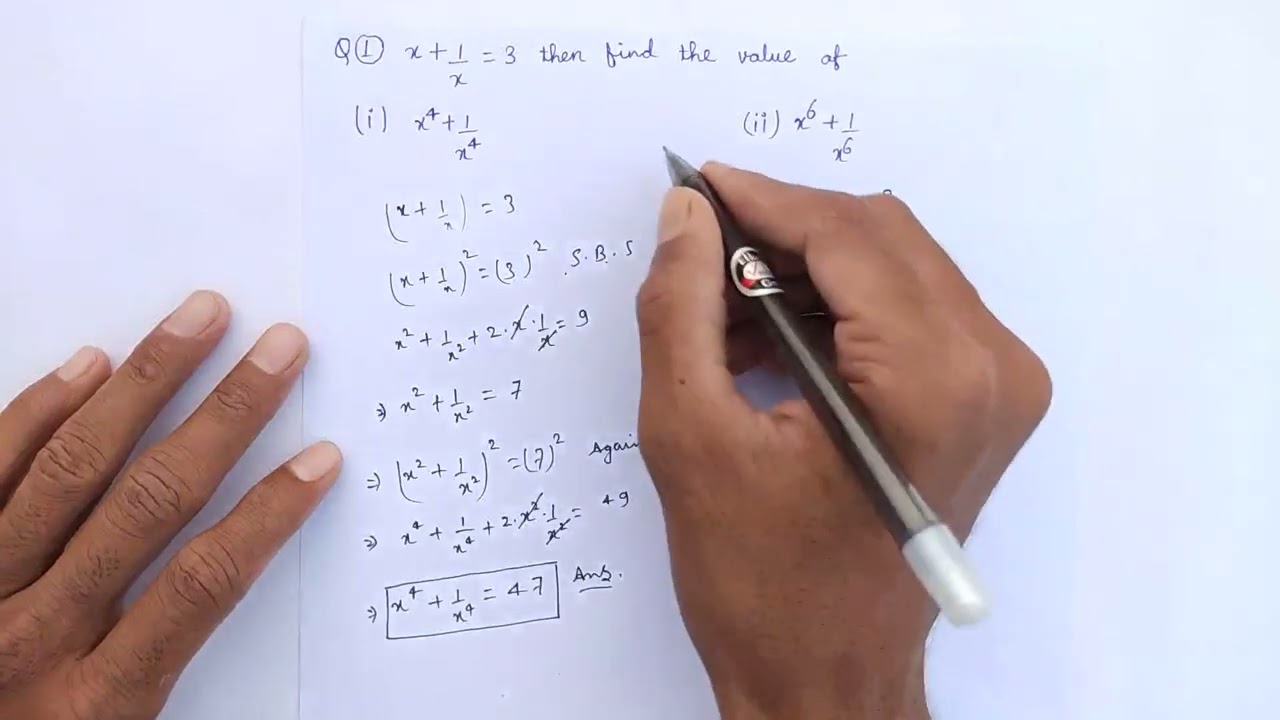 Q① x + 1/x = 3 then find the value of
(i) x⁴ + 1/x⁴
(ii) x⁶ + 1/x⁶
(x + 1/x) = 3
(x + 1/x)² = (3)² S.B.S
x² + 1/x² + 2·x·1/x = 9
⇒ x² + 1/x² = 7
⇒ (x² + 1/x²)² = (7)² Again
⇒ x⁴ + 1/x⁴ + 2·x²·1/x² = 49
⇒ x⁴ + 1/x⁴ = 47 Ans.